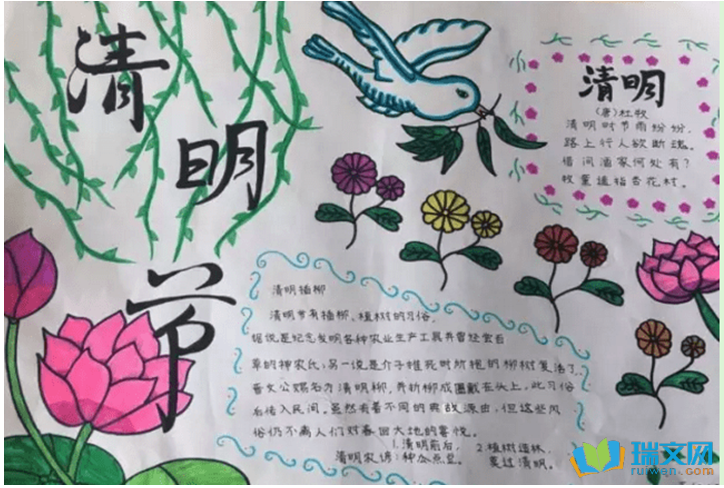 清
明
节
清明
(唐)杜牧
清明时节雨纷纷,
路上行人欲断魂。
借问酒家何处有?
牧童遥指杏花村。
清明插柳
清明节有插柳、植树的习俗,
据说是纪念发明各种农业生产工具并曾经尝百
草的神农氏;另一说是介子推死时所抱的柳树复活了,
晋文公赐名为清明柳,并折柳成圈戴在头上,此习俗
后传入民间,虽然有着不同的典故源由,但这些风
俗仍不离人们对春回大地的喜悦。
1.清明前后, 2.植树造林,
清明农谚:种瓜点豆。 莫过清明。
瑞文网
ruiwen.com